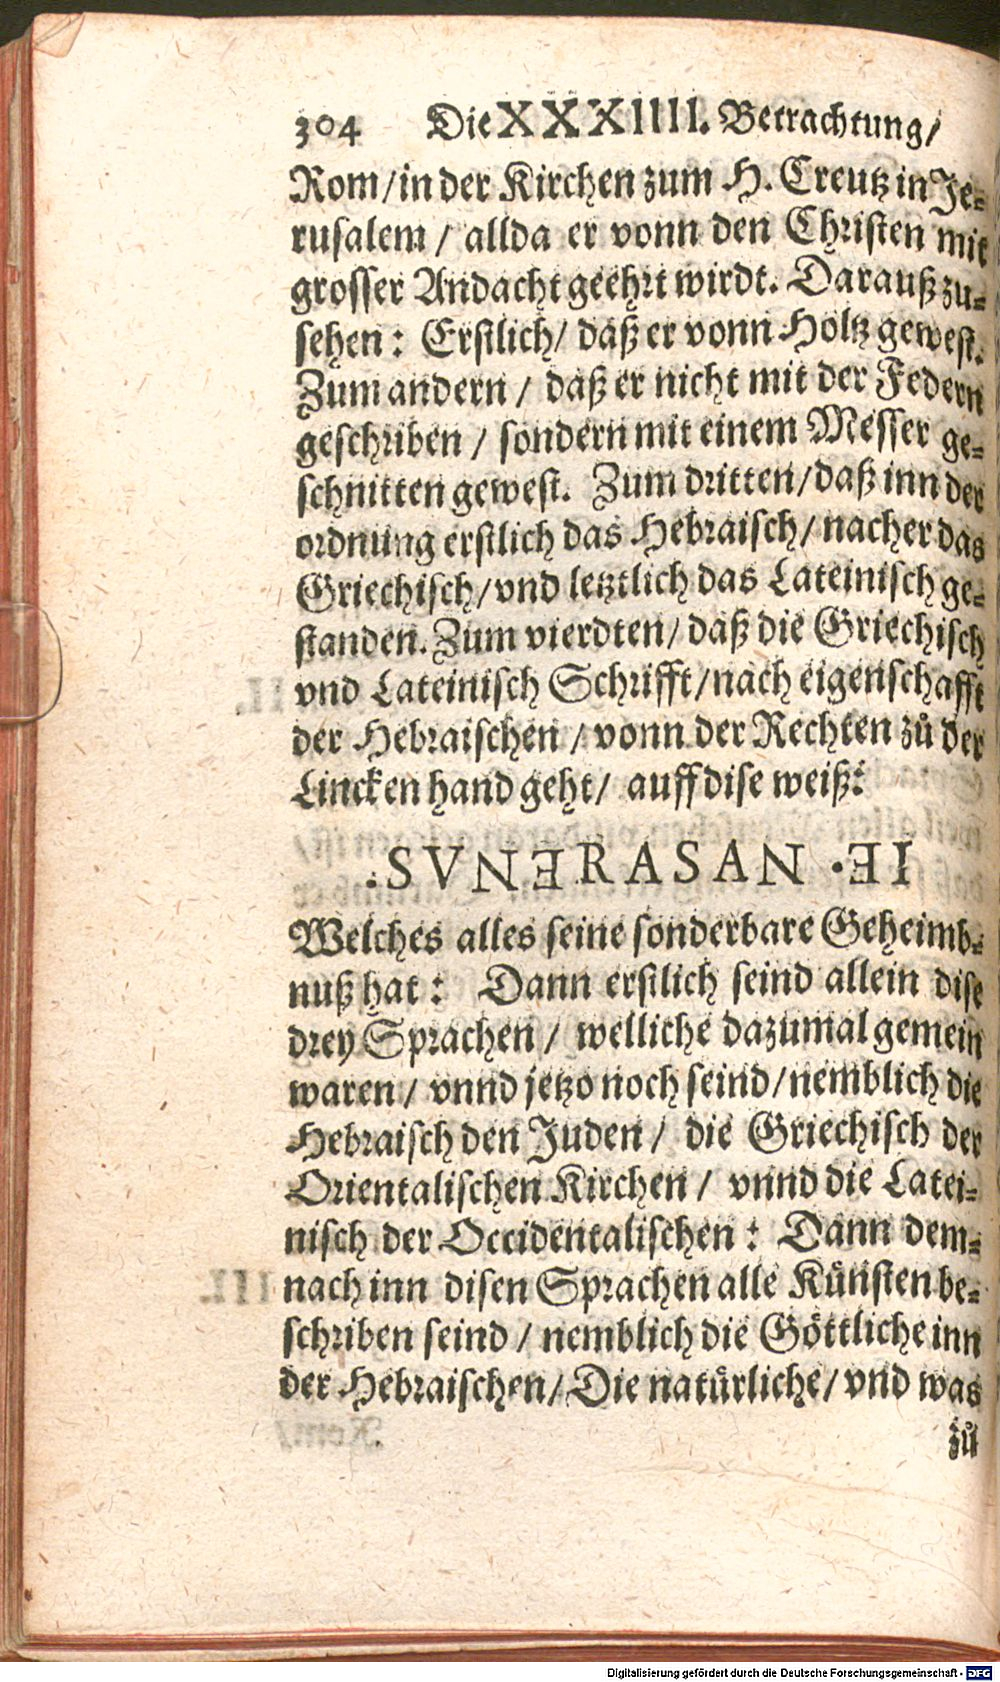 304 Die XXXIIII. Betrachtung/
Rom/in der Kirchen zum H. Creutz in Je-
rusalem / allda er vonn den Christen mit
grosser Andacht geehrt wirdt. Darauß zu-
sehen: Erstlich/ daß er vonn Holtz gewest.
Zum andern / daß er nicht mit der Federn
geschriben / sondern mit einem Messer ge-
schnitten gewest. Zum dritten/daß inn der
ordnung erstlich das Hebraisch/ nacher das
Griechisch/vnd letztlich das Lateinisch ge-
standen. Zum vierdten/ daß die Griechisch
vnd Lateinisch Schrifft/nach eigenschafft
der Hebraischen / vonn der Rechten zů der
Lincken hand geht/ auff dise weiß:
.SVNERASAN . EI
Welches alles seine sonderbare Geheimb-
nuß hat: Dann erstlich seind allein dise
drey Sprachen / welliche dazumal gemein
waren / vnnd jetzo noch seind/nemblich die
Hebraisch den Juden / die Griechisch der
Orientalischen Kirchen / vnnd die Latei-
nisch der Occidentalischen: Dann dem-
nach inn disen Sprachen alle Künsten be-
schriben seind / nemblich die Göttliche inn
der Hebraischen/ Die natürliche/ vnd was
zů
Digitalisierung gefördert durch die Deutsche Forschungsgemeinschaft - DFG